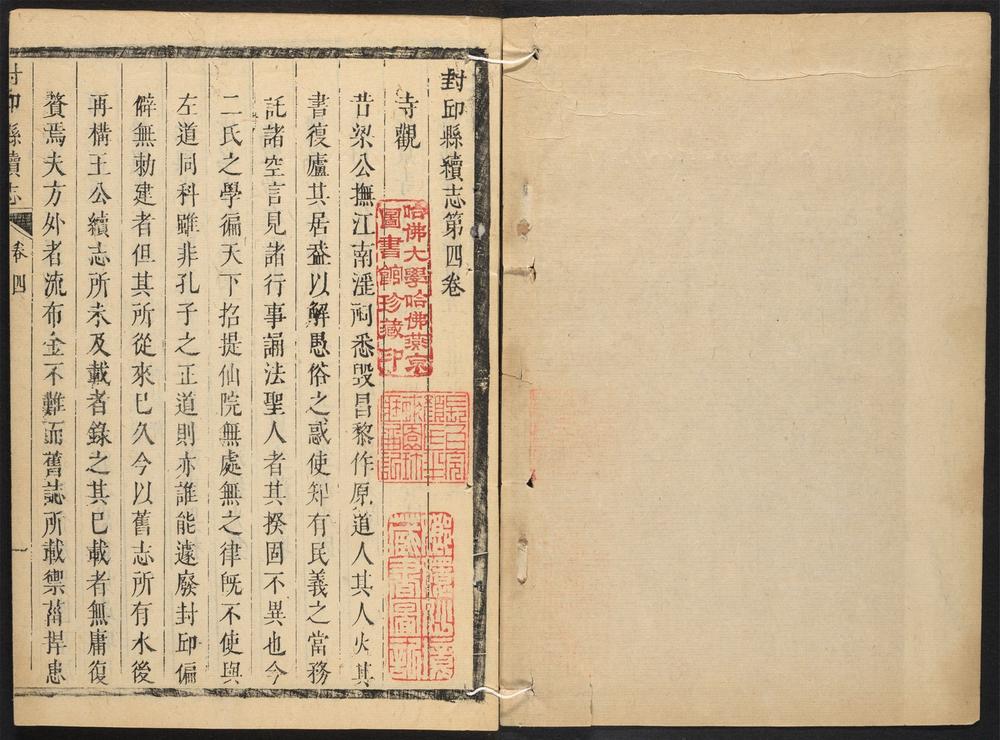 封邱縣續志第四卷
寺觀
昔梁公撫江南淫祠悉毀昌黎作原道人其人火其
書復廬其居葢以解愚俗之惑使知有民義之當務
託諸空言見諸行事誦法聖人者其揆固不異也今
二氏之學徧天下招提仙院無處無之律旣不使與
左道同科雖非孔子之正道則亦誰能遽廢封邱偏
僻無勅建者但其所從來巳久今以舊志所有水後
再構王公續志所未及載者錄之其巳載者無庸復
贅焉夫方外者流布金不難而舊誌所載禦菑捍患
封邱縣續志
卷四
一
哈佛大學哈佛燕京
圖書館珍藏印